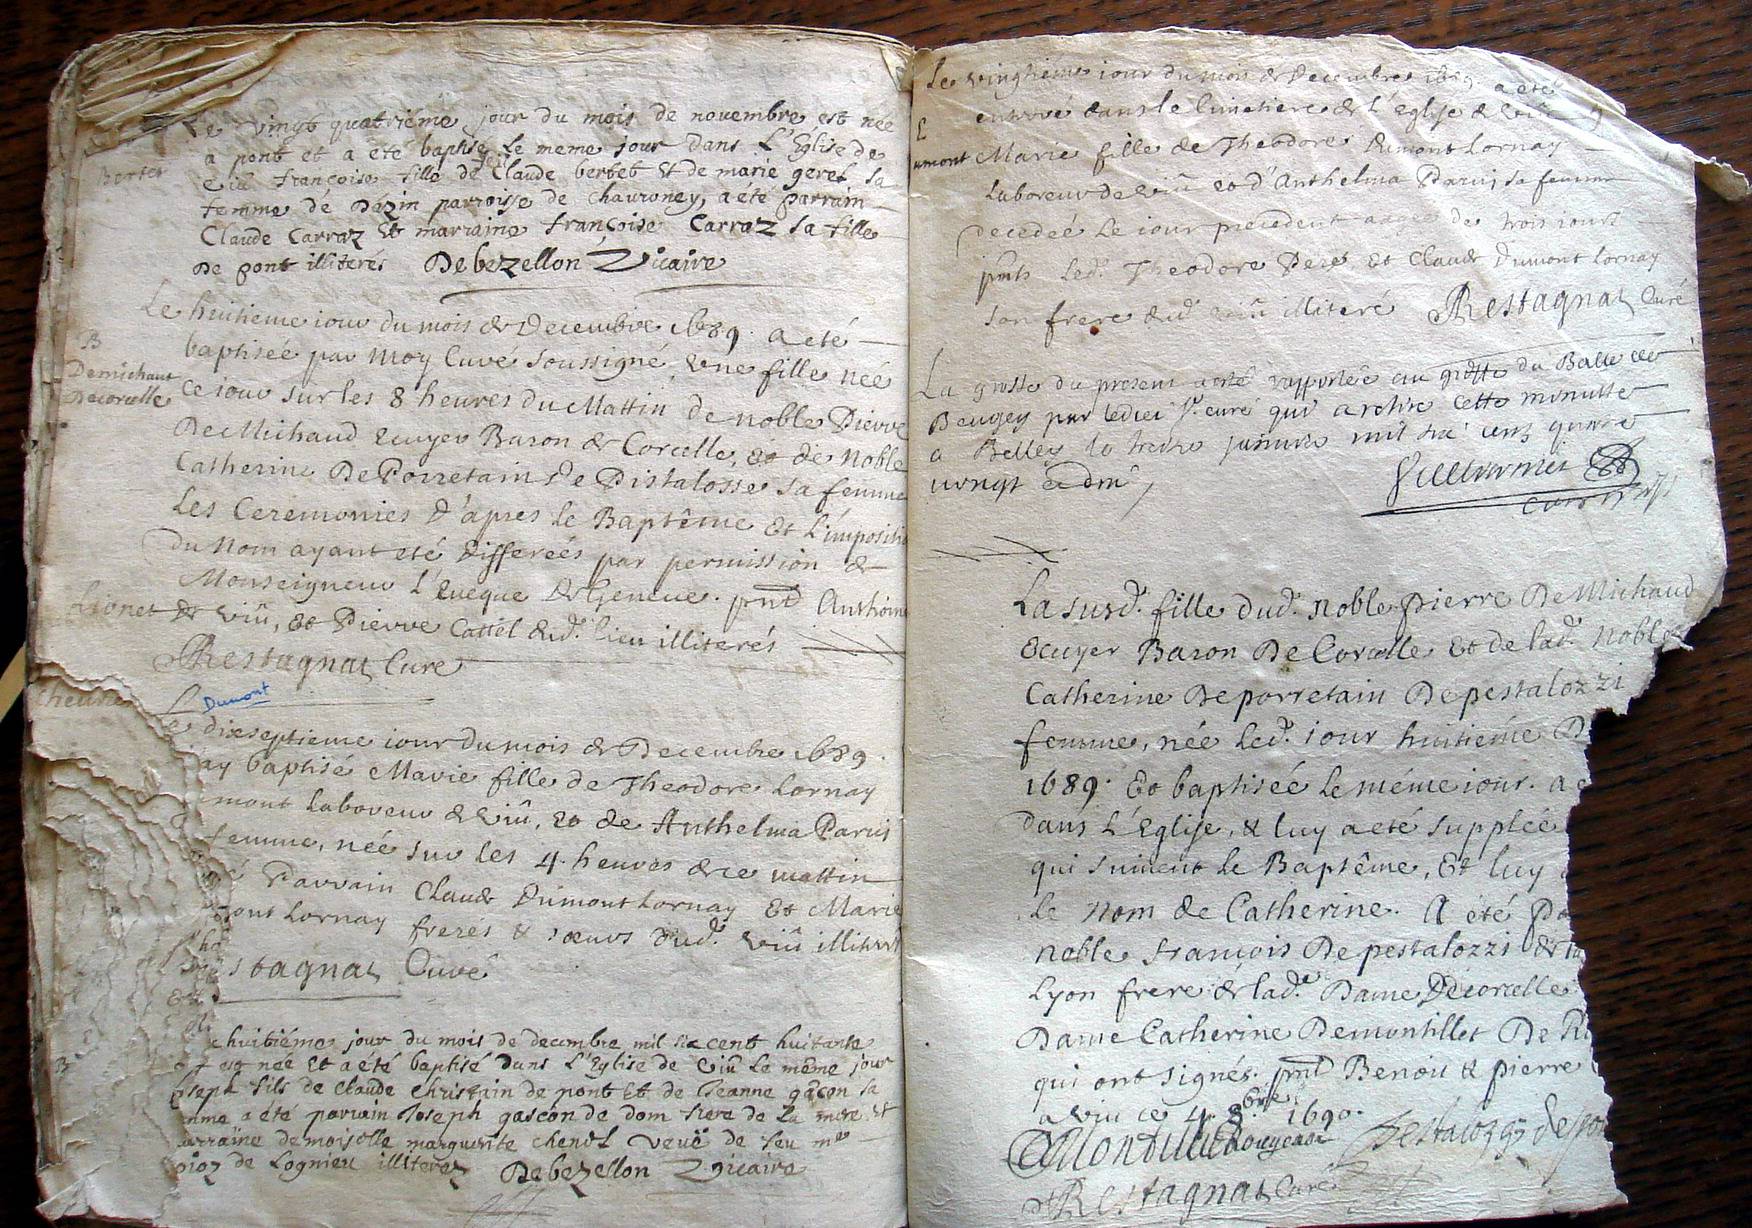 Le vingt quatriéme jour du mois de novembre est née
a pont et a été baptisé Le meme jour dans L'Eglise de
Viû françoise fille de Claude berbet Et de marie geret sa
femme de Dazin parroisse de chavroney, a été parrain
Claude Carraz Et marraine françoise Carraz sa fille
De pont illiteres Debezellon Vicaire
Berbet
Le huitieme iour du mois de Decembre 1689. a eté
baptisée par moy Curé soussigné, une fille née
ce iour sur les 8 heures du Mattin de noble Pierre
De Michaud Ecuyer Baron de Corcelle, et de noble
Catherine De Porretain De Pistalosse sa femme
Les Ceremonies d'apres le Baptême et L'impositi
du Nom ayant eté differeés par permission de
Monseigneur L'Eveque de Geneve. pnt Anthoine
Lionet de Viû, et Pierre Cattel dud. lieu illiterés
Restagnat Curé
B
Demichaut
Decorcelle
Dumont
Le dixseptieme iour du mois de Decembre 1689.
ay baptisé Marie fille de Theodore Lornay
mont Laboureur de Viû, et de Anthelma Paruis
femme, née sur les 4 heures de ce mattin
é Parrain Claude Dumont Lornay et Marie
ont Lornay freres & sœurs dud. Viû illiter
stagnat Curé
huitiéme jour du mois de decembre mil six cent huitante
née Et a été baptisé dans L'Eglise de Viû Le même jour
oseph fils de Claude Christain de pont et de Jeanne gascon sa
mme a été parrain Joseph gascon de dom frere de La mere et
arraine demoiselle marguerite chenel veuë de feu mre
de Lognieu illiterez Debezellon Vicaire
B
Le vinghieme iour du mois de Decembre 1689 a eté
enterré dans le Cimetiere de L'Eglise de Viû
Marie fille de Theodore Dumont Lornay
Laboureur de Viû et d'Anthelma Paruis sa femme
decedeé Le iour precedent aagée de trois iours
pnts Led. Theodore Pere et Claude Dumont Lornay
son frere dud Viû illiteré Restagnat Curé
umont
La grosse du present a esté rapportée au greffe du Balliage de
Beugey par ledict Sr. curé qui a retiré cette minutte
a Belley le treize janvier mil six cens quatre
vingt &
La susd. fille dud. Noble Pierre De Michaud
Ecuyer Baron De Corcelle et de lad. Noble
Catherine De porretain De pestalozzi
femme, née Led. iour huitiéme D
1689. Et baptisée Le méme iour. a e
dans L'Eglise, & luy a eté supplée
qui suivent Le Baptême, Et luy
le Nom de Catherine. A été pa
noble françois De pestalozzi de
Lyon frere de lad.e Dame Decorcelle
Dame Catherine Demontillet De R
qui ont signés. pnt Benoit & pierre
a Viu ce 4 8bre 1690.
Restagnat Curé